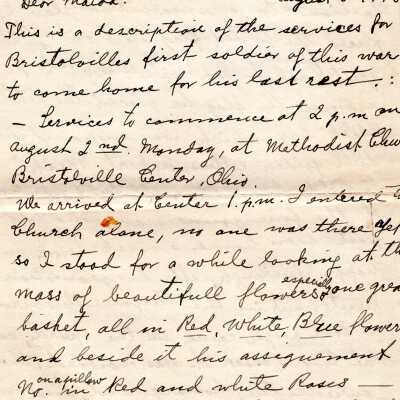 Dear Maida:
This is a description of the services for
Bristolvilles first soldier of this war
to come home for his last rest. :
— Services to commence at 2 p.m on
august 2 nd. Monday, at Methodist Chu
Bristolville Center, Ohio.
We arrived at Center 1 p.m. I entered
Church alone, no one was there yet
so I stood for a while looking at th
mass of beautifull flowers, especially one grea
basket, all in Red, White, Blue flower
and beside it his assignement
No. on a pillow in Red and white Roses —